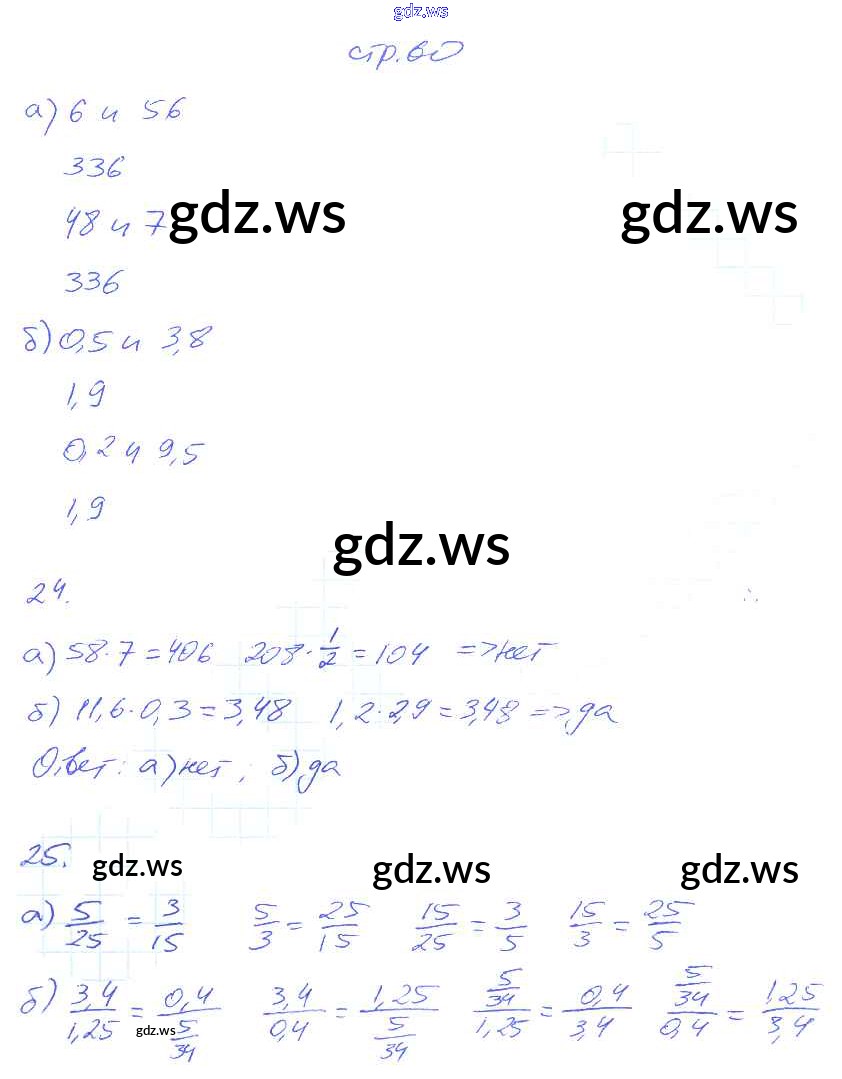 gdz.ws
стр. 60
а) 6 и 56
336
48 и 7 gdz.ws gdz.ws
336
б) 0,5 и 3,8
1,9
0,2 и 9,5
1,9
gdz.ws
24.
а) 58 · 7 = 406 208 · 1/2 = 104 => нет
б) 11,6 · 0,3 = 3,48 1,2 · 2,9 = 3,48 => да
Ответ: а) нет; б) да
25. gdz.ws gdz.ws gdz.ws
а) 5/25 = 3/15 5/3 = 25/15 15/25 = 3/5 15/3 = 25/5
б) 3,4/1,25 = 0,4/(5/34) 3,4/0,4 = 1,25/(5/34) (5/34)/1,25 = 0,4/3,4 (5/34)/0,4 = 1,25/3,4
gdz.ws